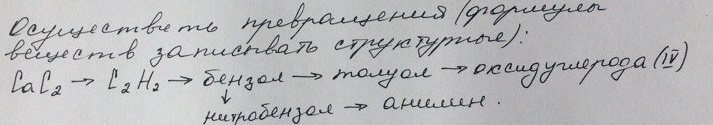 Осуществить превращения (формулы
веществ записывать структурные):
CaC₂ → C₂H₂ → бензол → толуол → оксид углерода (IV)
↓
нитробензол → анилин.